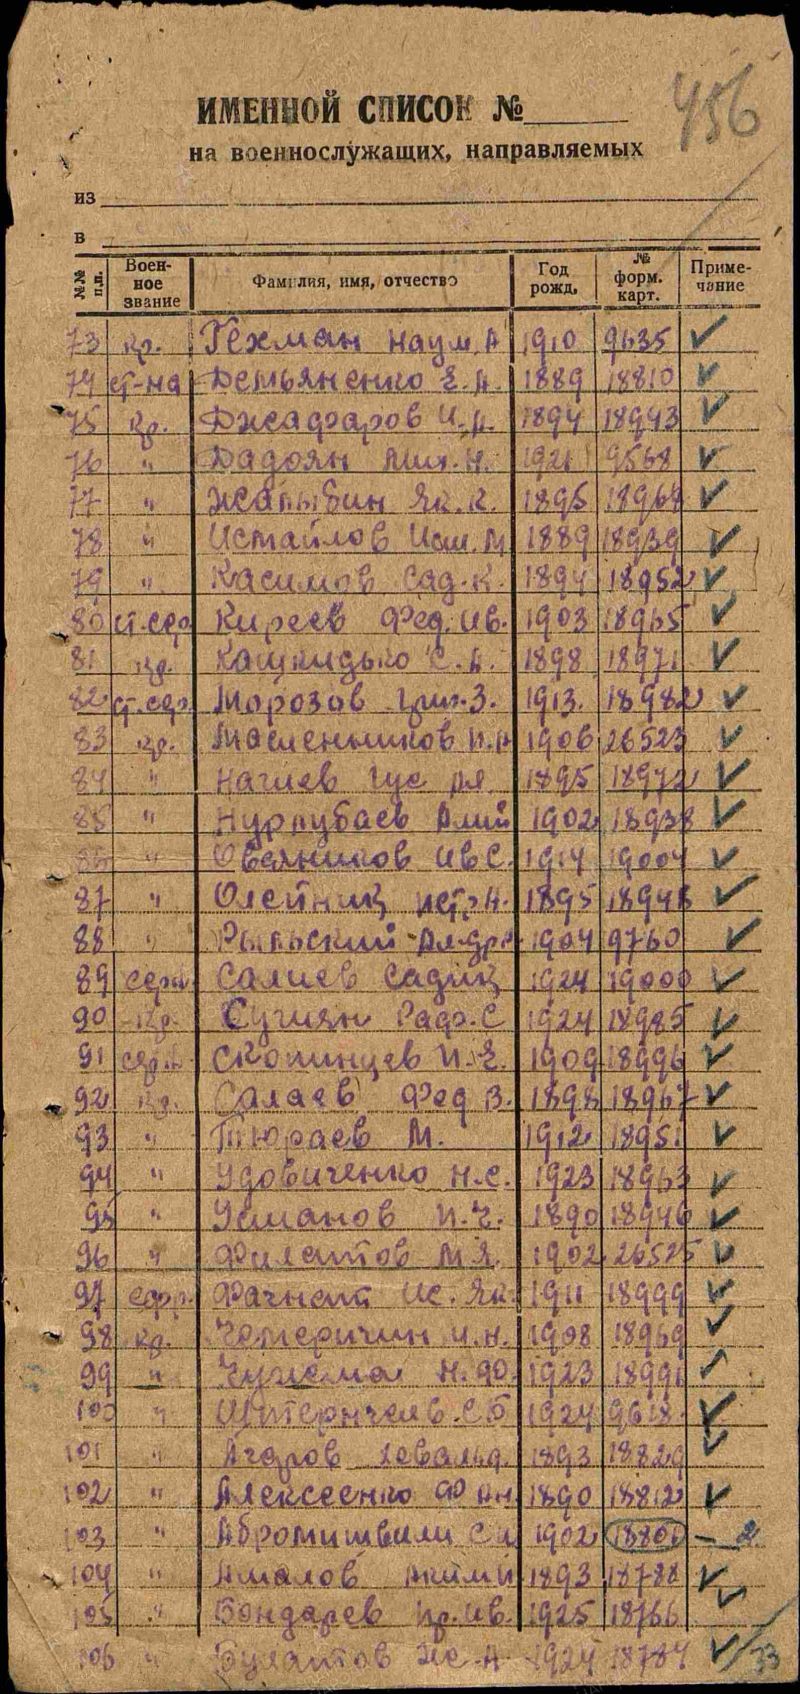 456
ИМЕННОЙ СПИСОК №
на военнослужащих, направляемых
из
в
№№ п.п. Воен-ное звание Фамилия, имя, отчество Год рожд. № форм. карт. Приме-чание
73 кр. Гехман Наум. А 1910 9635 ✓
74 ст-на Демьяненко Е. А. 1889 18810 ✓
75 кр. Джафаров И. А. 1894 18943 ✓
76 " Дадоян Мих. Н. 1921 9568 ✓
77 " Жалыбин Як. К. 1895 18968 ✓
78 " Исмайлов Исм. М 1889 18939 ✓
79 " Касимов Сад. К. 1894 18952 ✓
80 ст. сер Киреев Фед. Ив. 1903 18965 ✓
81 кр. С. А. 1898 18971 ✓
82 ст. сер. Морозов Григ. З. 1913. 18982 ✓
83 кр. Масленников 1906 26523 ✓
84 " Нагиев Гус 1895 18972 ✓
85 " Алий 1902 18938 ✓
86 " Овсяников Ив С. 1914 19004 ✓
87 " Олейник Петр. Н. 1895 18948 ✓
88 " Рыльский 1904 9760 ✓
89 серж Салиев Садик 1924 19000 ✓
90 кр. Раф. С 1924 18985 ✓
91 серж. Скопинцев И. Е. 1909 18996 ✓
92 кр. Салаев Фед В. 1898 18967 ✓
93 " Тюраев М. 1912 18951 ✓
94 " Удовиченко Н. С. 1923 18963 ✓
95 " Усманов И. Г. 1890 18946 ✓
96 " Филатов М Я. 1902 26525 ✓
97 ефр. Ис. Як 1911 18999 ✓
98 кр. И. Н. 1908 18969 ✓
99 " 1923 18991 ✓
100 " С Б 1924 9618. ✓
101 " 1893 18829 ✓
102 " Алексеенко Ф Ан. 1890 18812 ✓
103 " 1902 18801 – 2
104 " Амалов 1893 18788 ✓
105 " Бондарев Гр. Ив. 1925 18766 ✓
106 " Булатов Ис. А 1924 18784 ✓
33